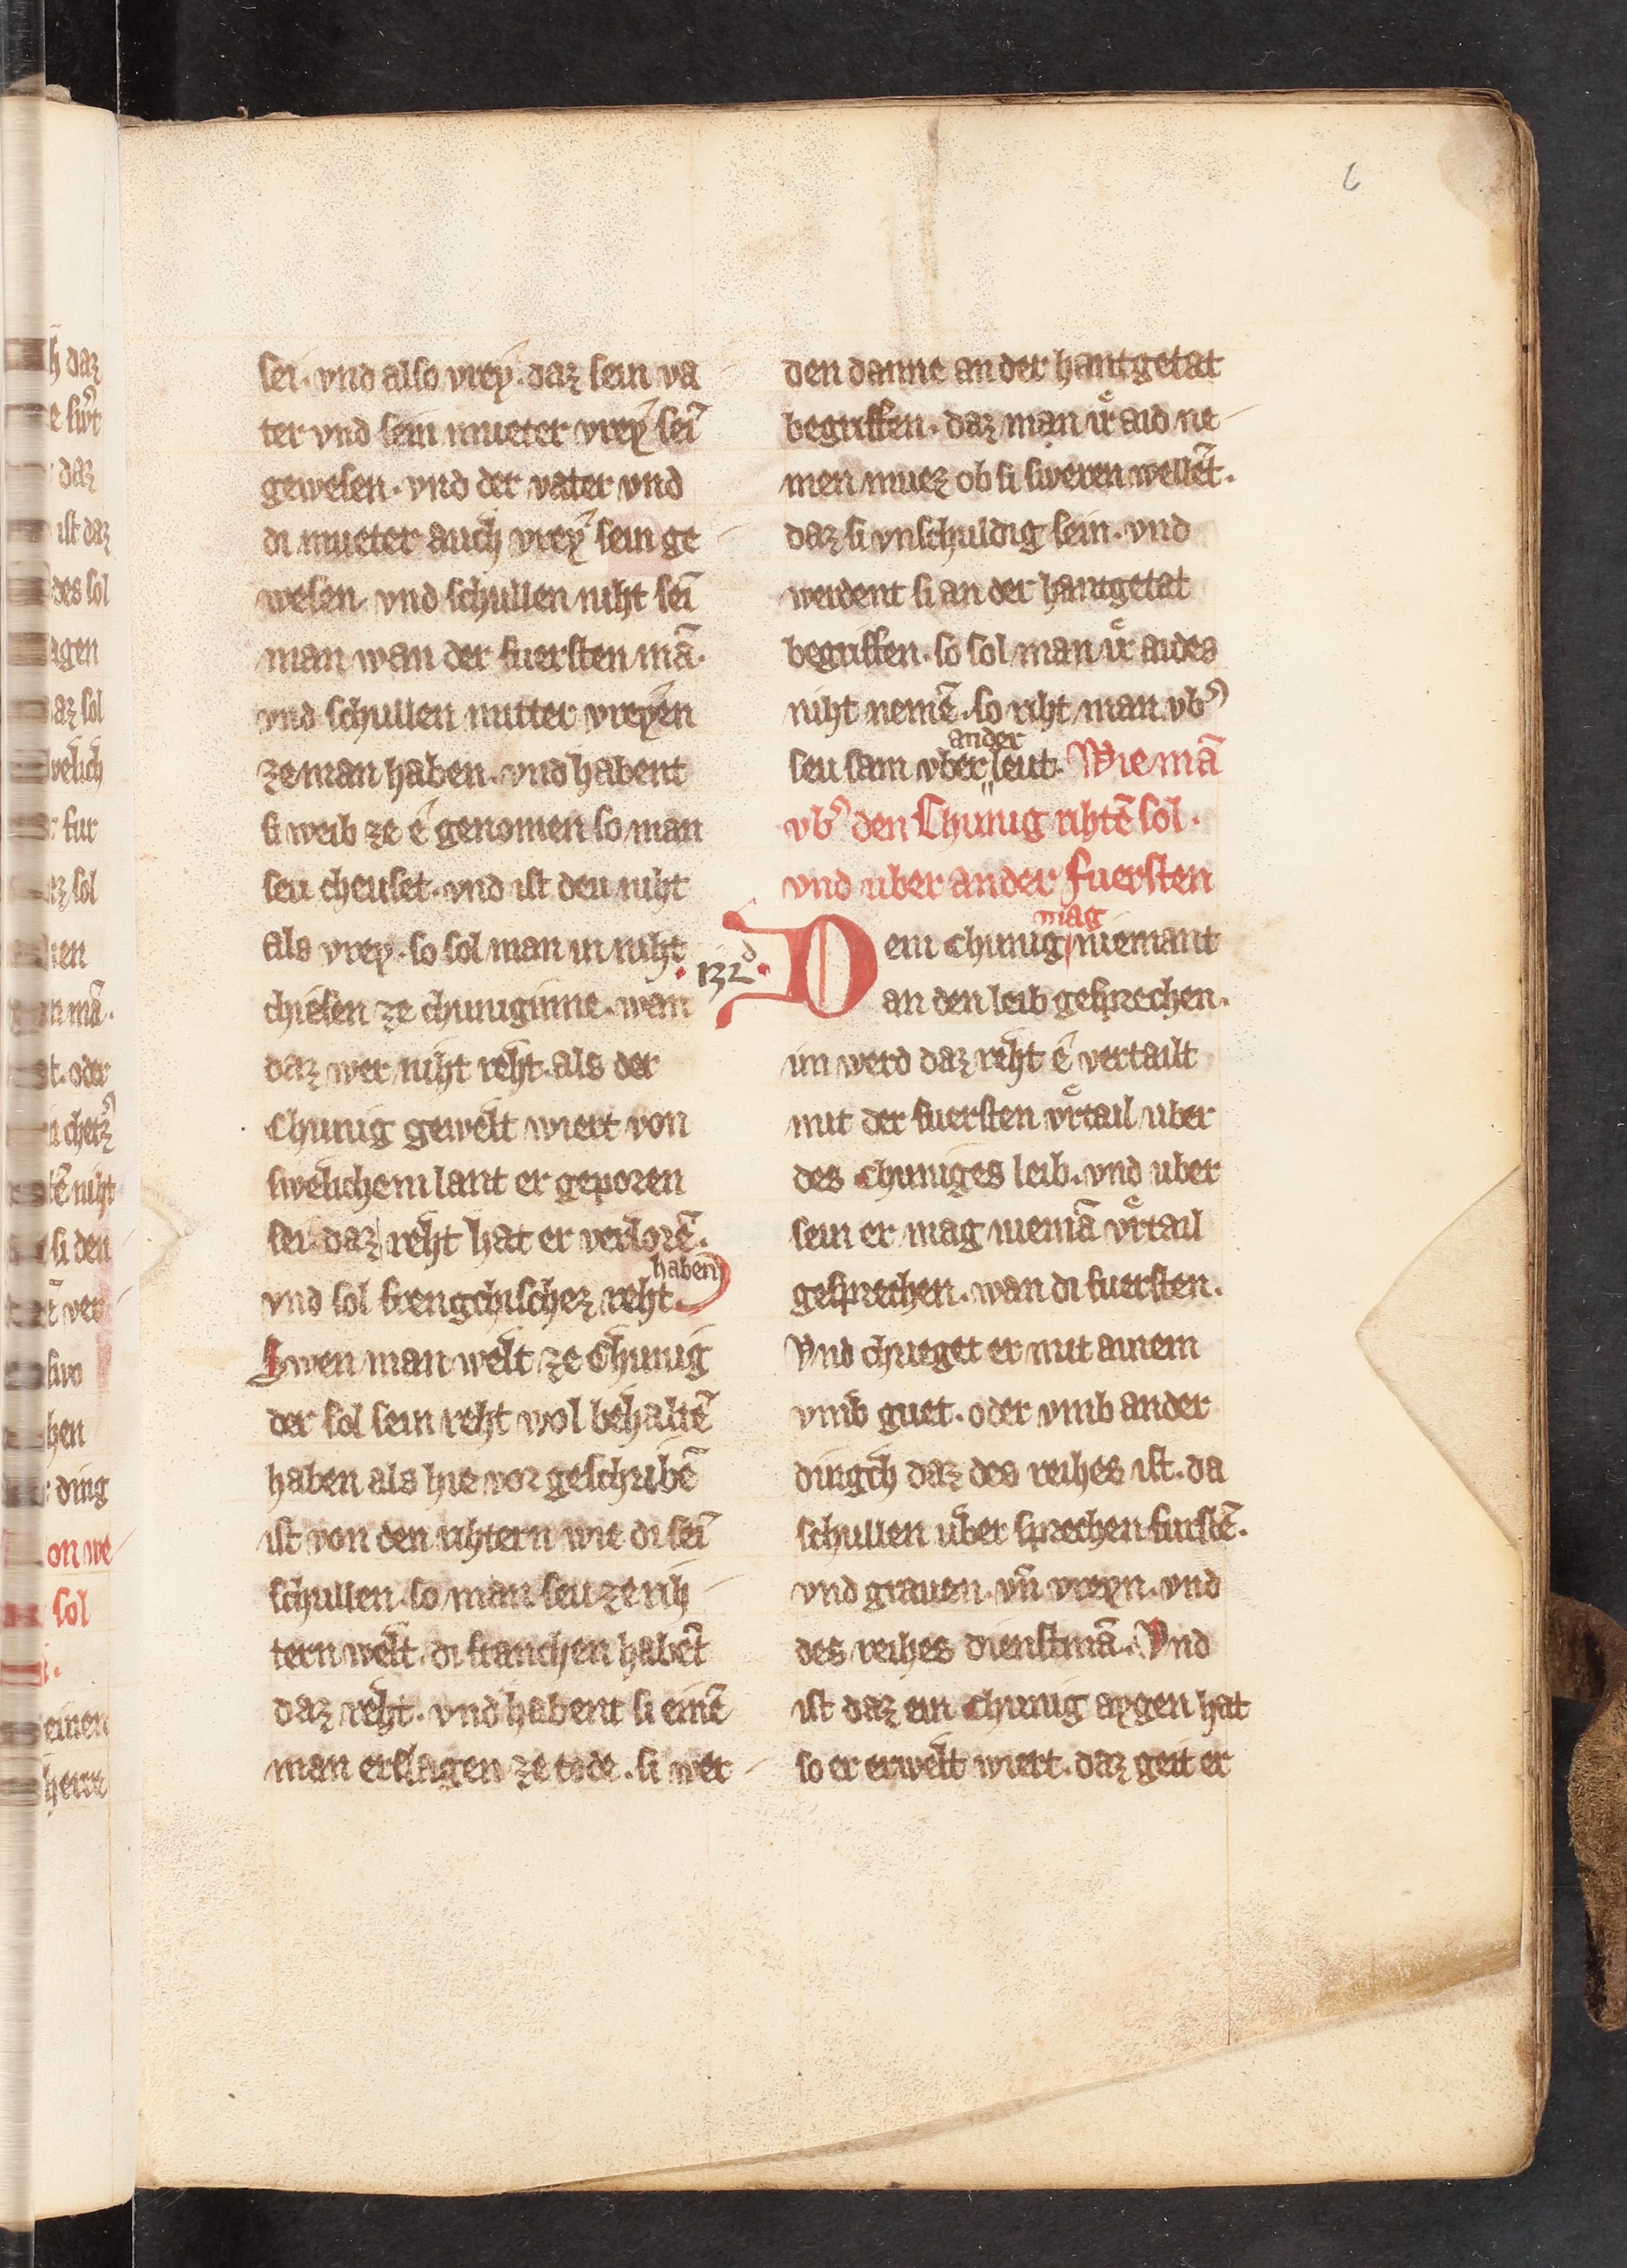 6
sei. vnd also vrey. daz sein va
ter vnd sein mueter vrey sei᷉
gewesen. vnd der vater vnd
di mueter auch vrey sein ge
wesen. vnd schullen niht sei᷉
man wan der fuersten mā.
vnd schullen mitter vreyen
ze man haben. vnd habent
si weib ze e genomen so man
seu cheuset. vnd ist deu niht
als vrey. so sol man in niht
chiesen ze chuniginne. wan
daz wer niht reht. als der
Chunig gewelt wiert von
swelichem lant er geporen
sei. daz reht hat er verlorē.
haben
vnd sol frengchischez reht.
Swen man welt ze Chunig
der sol sein reht wol behaltē
haben als hie vor geschribē
ist von den rihtern wie di sei᷉
schullen. so man seu ze rih
tern welt. di franchen habēt
daz reht. vnd habent si einē
man erslagen ze tode. si wer
den danne an der hantgetat
begriffen. daz man ir aid ne
men muez ob si sweren wellēt.
daz si vnschuldig sein. vnd
werdent si an der hantgetat
begriffen. so sol man ir aides
niht nemē. so riht man vb᾽
ander
seu sam vber leut. Wie mā
vb᾽ den Chunig rihtē sol.
vnd uber ander fuersten
mag
.132d.
Dem chunig niemant
an den leib gesprechen.
im werd daz reht e vertailt
mit der fuersten vrtail uber
des Chuniges leib. vnd uber
sein er mag niemā vrtail
gesprechen. wan di fuersten.
Vnd chrieget er mit ainem
vmb guet. oder vmb ander
dingch daz des reihes ist. da
schullen uber sprechen furstē.
vnd grauen. vn̄ vreyn. vnd
des reihes dienstmā. Vnd
ist daz ein Chunig aygen hat
so er erwelt wiert. daz geit er